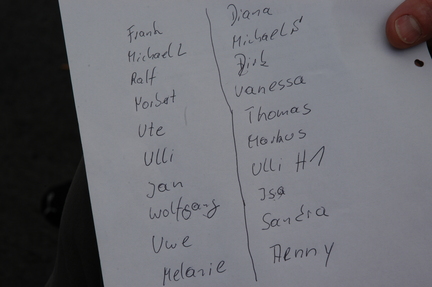 Frank
Michael L
Ralf
Norbert
Ute
Ulli
Jan
Wolfgang
Uwe
Melanie
Diana
Michael S
Dirk
Vanessa
Thomas
Markus
Ulli H1
Isa
Sandra
Henny